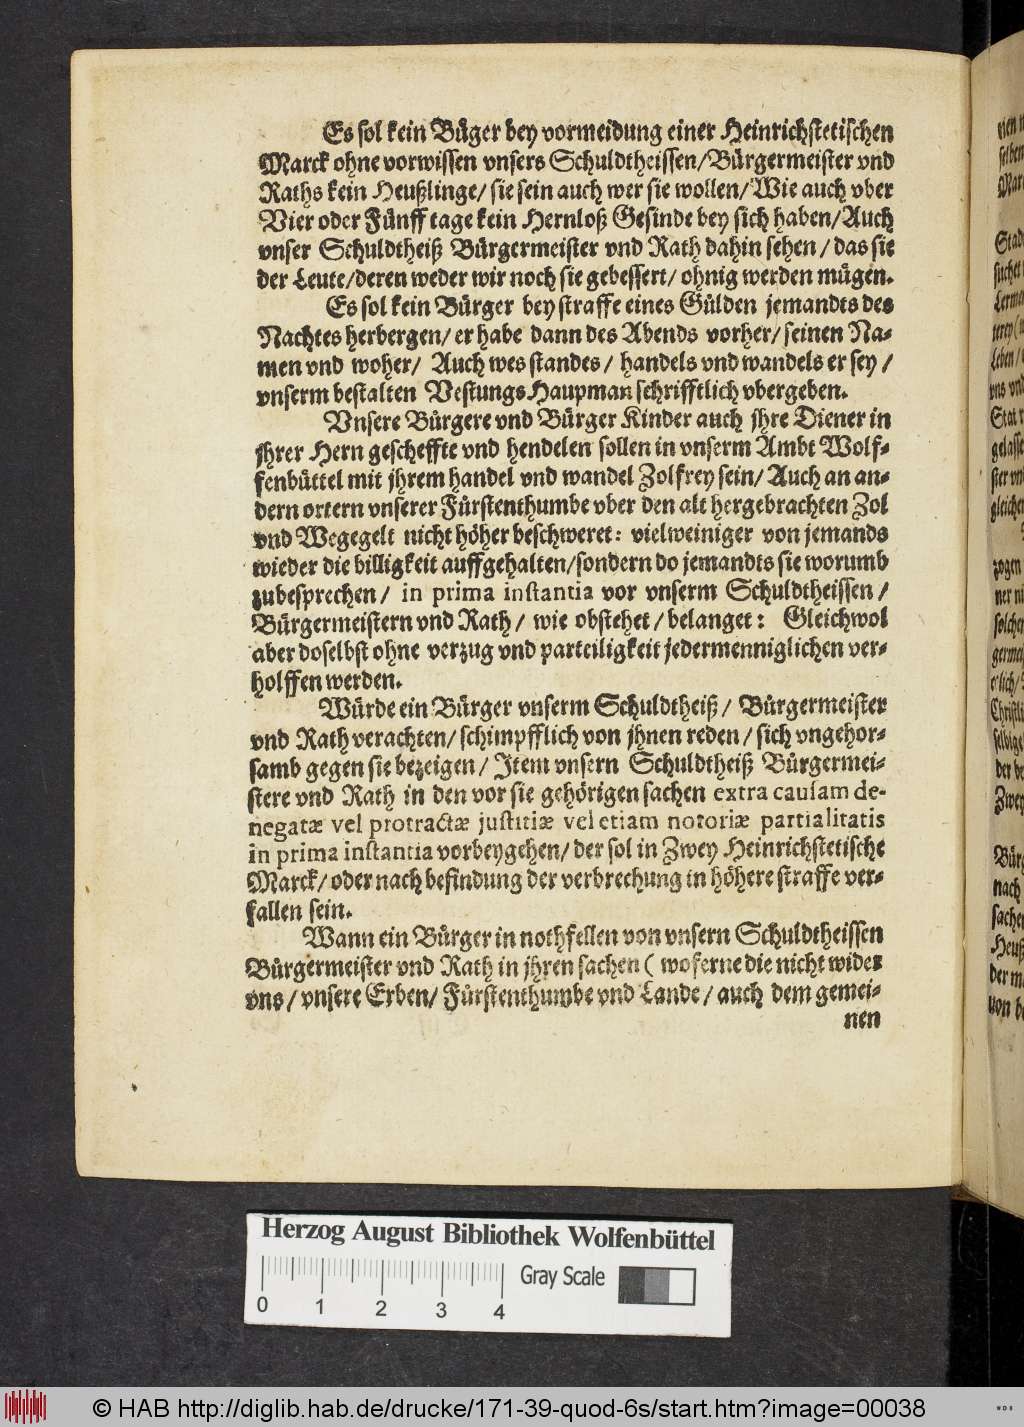 Es sol kein Büger bey vormeidung einer Heinrichstetischen
Marck ohne vorwissen vnsers Schuldtheissen/Bürgermeister vnd
Raths kein Heußlinge/ sie sein auch wer sie wollen/ Wie auch vber
Vier oder Fünff tage kein Hernloß Gesinde bey sich haben/Auch
vnser Schuldtheiß Bürgermeister vnd Rath dahin sehen / das sie
der Leute/deren weder wir noch sie gebessert/ ohnig werden mügen.
Es sol kein Bürger bey straffe eines Gülden jemandts des
Nachtes herbergen/ er habe dann des Abends vorher/ seinen Na-
men vnd woher/ Auch wes standes / handels vnd wandels er sey /
vnserm bestalten Vestungs Haupman schrifftlich vbergeben.
Vnsere Bürgere vnd Bürger Kinder auch jhre Diener in
jhrer Hern gescheffte vnd hendelen sollen in vnserm Ambt Wolf-
fenbüttel mit jhrem handel vnd wandel Zolfrey sein/ Auch an an-
dern ortern vnserer Fürstenthumbe vber den alt hergebrachten Zol
vnd Wegegelt nicht höher beschweret: vielweiniger von jemands
wieder die billigkeit auffgehalten/sondern do jemandts sie worumb
zubesprechen/ in prima instantia vor vnserm Schuldtheissen /
Bürgermeistern vnd Rath / wie obstehet / belanget: Gleichwol
aber doselbst ohne verzug vnd parteiligkeit jedermenniglichen ver-
holffen werden.
Würde ein Bürger vnserm Schuldtheiß / Bürgermeister
vnd Rath verachten/ schimpfflich von jhnen reden / sich vngehor-
samb gegen sie bezeigen / Item vnsern Schuldtheiß Bürgermei-
stere vnd Rath in den vor sie gehörigen sachen extra causam de-
negatæ vel protractæ justitiæ vel etiam notoriæ partialitatis
in prima instantia vorbeygehen/ der sol in Zwey Heinrichstetische
Marck/ oder nach befindung der verbrechung in höhere straffe ver-
fallen sein.
Wann ein Bürger in nothfellen von vnsern Schuldtheissen
Bürgermeister vnd Rath in jhren sachen ( woferne die nicht wider
vns / vnsere Erben/ Fürstenthumbe vnd Lande / auch dem gemei-
nen
Herzog August Bibliothek Wolfenbüttel
Gray Scale
0 1 2 3 4
© HAB http://diglib.hab.de/drucke/171-39-quod-6s/start.htm?image=00038